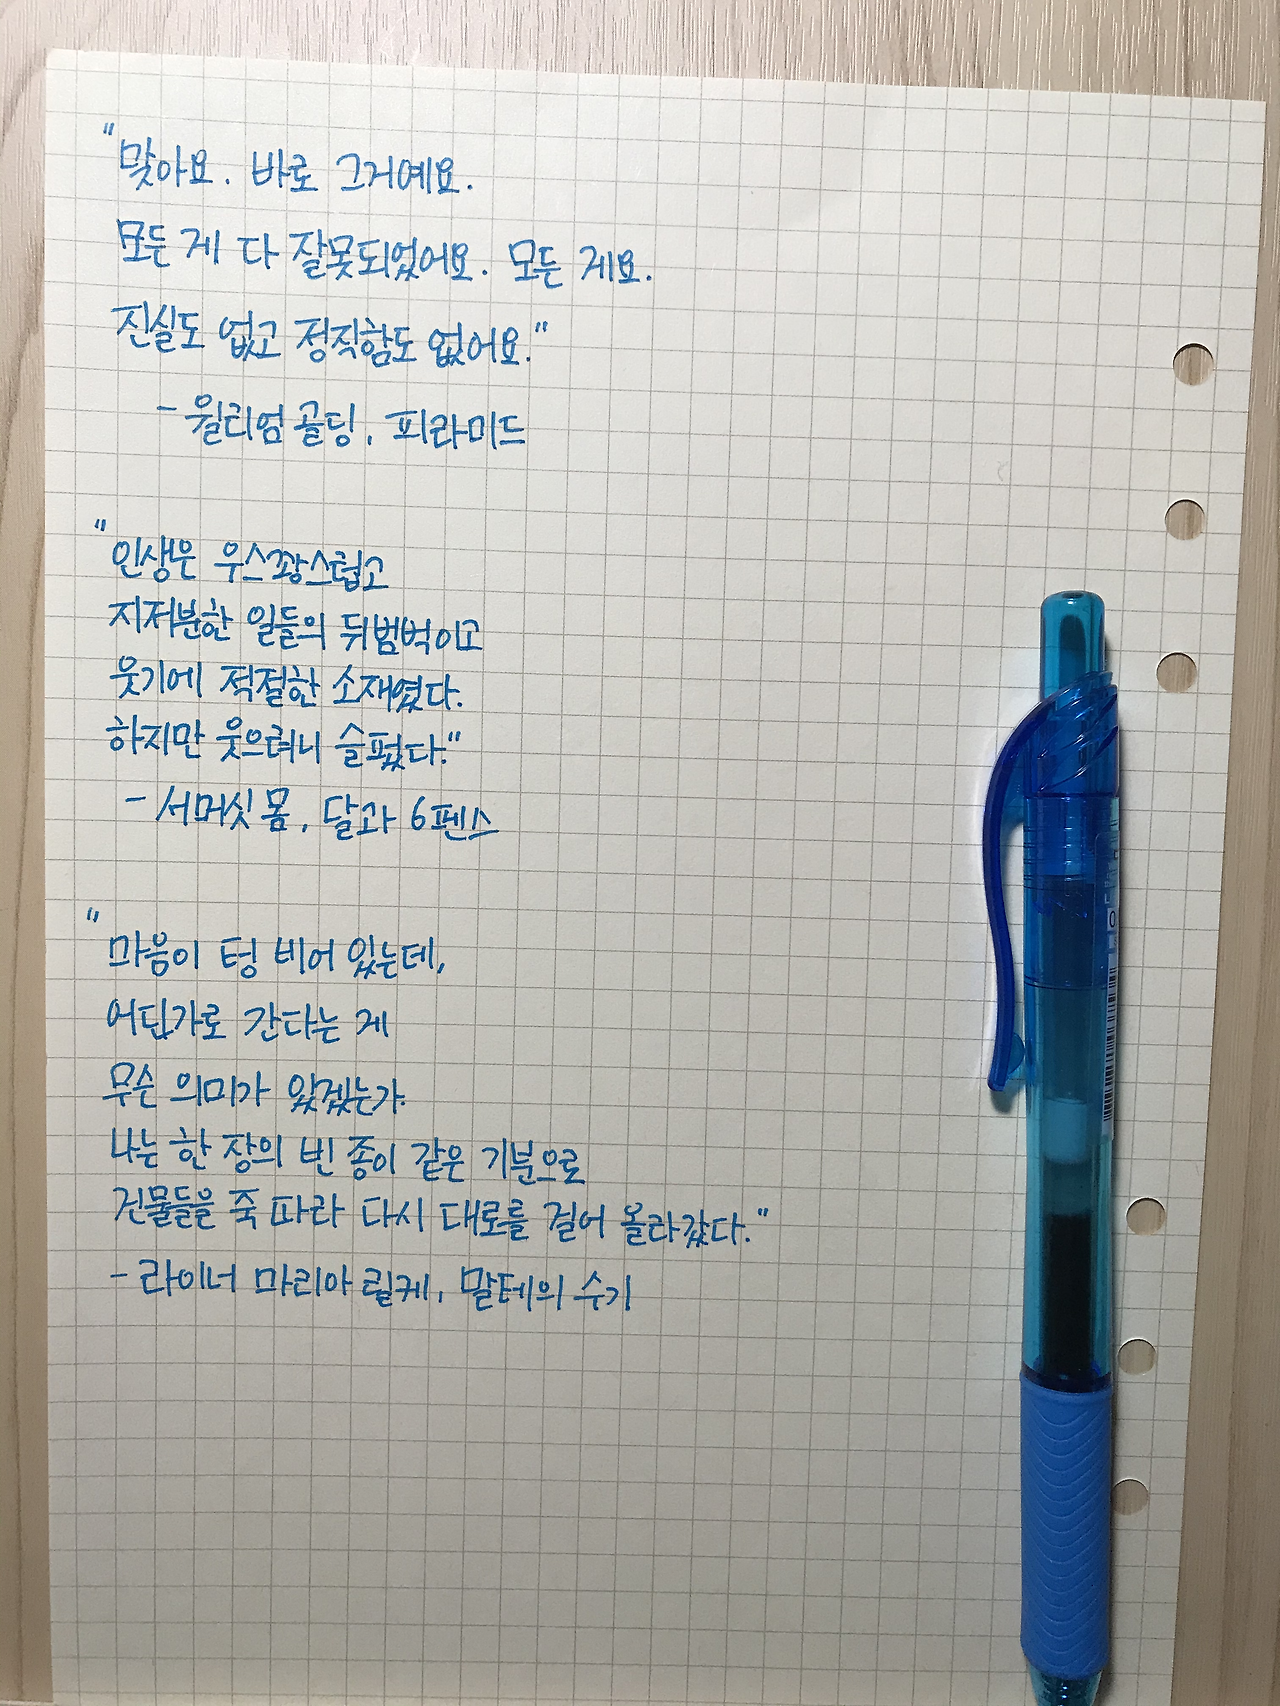 "맞아요. 바로 그거예요.
모든 게 다 잘못되었어요. 모든 게요.
진실도 없고 정직함도 없어요."
- 윌리엄 골딩, 피라미드
"인생은 우스꽝스럽고
지저분한 일들의 뒤범벅이고
웃기에 적절한 소재였다.
하지만 웃으려니 슬펐다."
- 서머싯 몸, 달과 6펜스
"마음이 텅 비어 있는데,
어딘가로 간다는 게
무슨 의미가 있겠는가.
나는 한 장의 빈 종이 같은 기분으로
건물들을 죽 따라 다시 대로를 걸어 올라갔다."
- 라이너 마리아 릴케, 말테의 수기